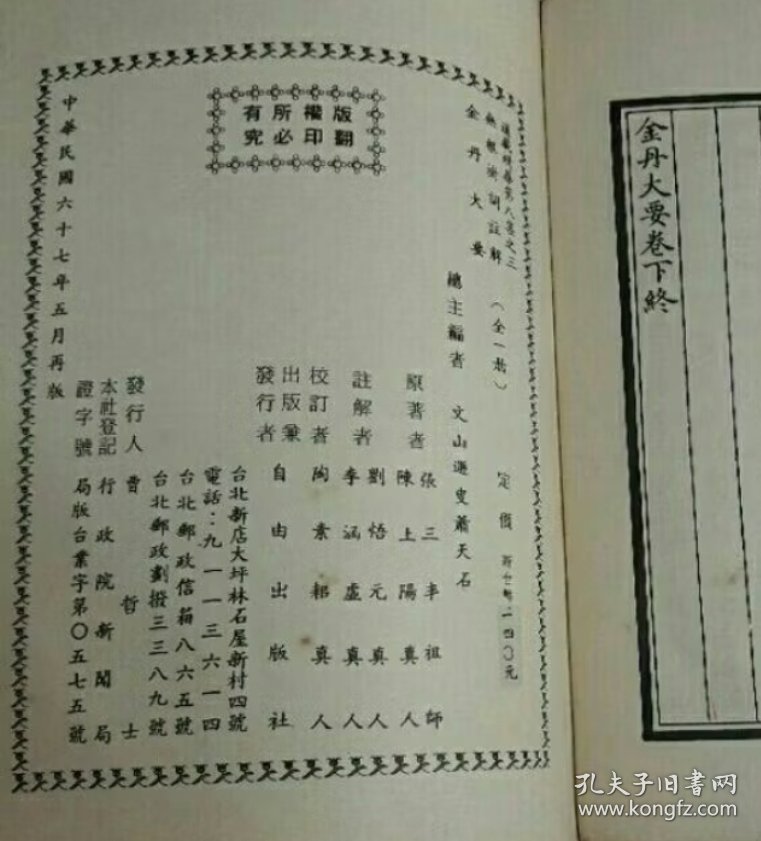 金丹大要卷下終
道藏精華第八集之三
無根樹詞註解
金丹大要
(全一冊)
定價 新台幣二四〇元
總主編者 文山遯叟蕭天石
原著者 張三丰祖師
陳上陽真人
註解者 劉悟元真人
李涵虛真人
校訂者 陶素耜真人
出版兼發行者 自由出版社
台北新店大坪林石屋新村四號
電話：九一一三六一四
台北郵政信箱八六五號
台北郵政劃撥三三八九號
發行人 曹哲士
本社登記證字號 行政院新聞局
局版台業字第〇五七五號
中華民國六十七年五月再版
版權所有
翻印必究
孔夫子旧书网
www.kongfz.com